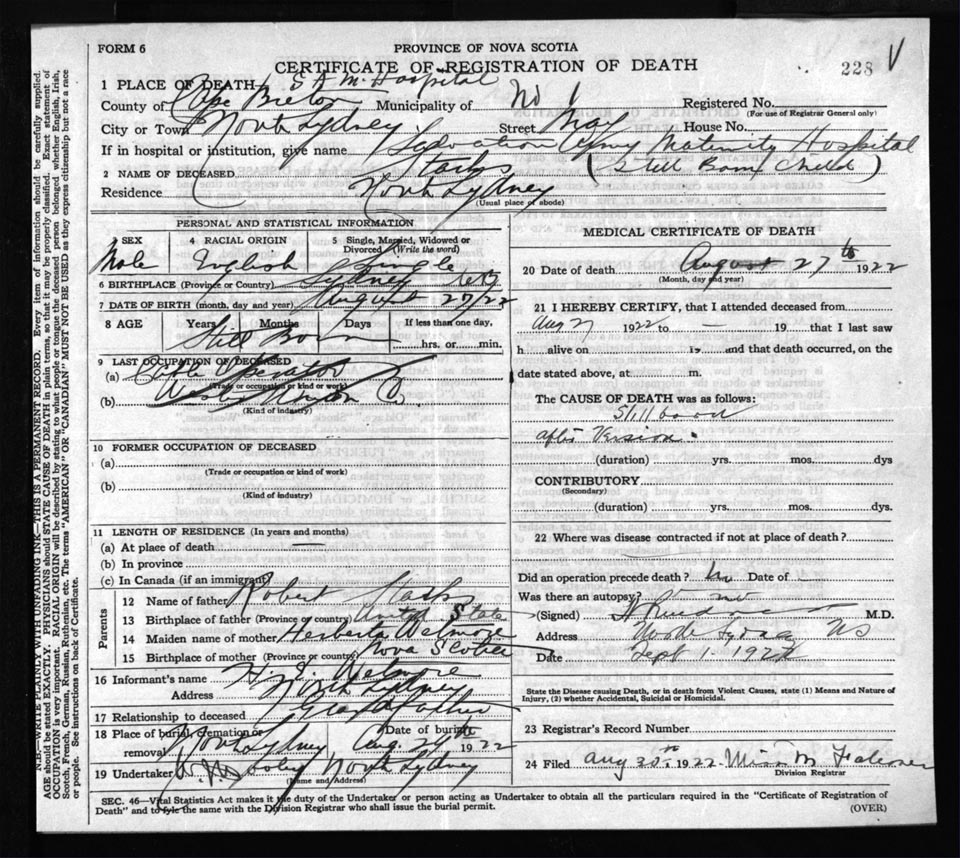 FORM 6
PROVINCE OF NOVA SCOTIA
CERTIFICATE OF REGISTRATION OF DEATH
228 V
1 PLACE OF DEATH S A M. Hospital
County of Cape Breton Municipality of No 1 Registered No.
(For use of Registrar General only)
City or Town North Sydney Street May House No.
If in hospital or institution, give name Salvation Army Maternity Hospital
2 NAME OF DECEASED (Still Born Child)
Residence North Sydney
(Usual place of abode)
PERSONAL AND STATISTICAL INFORMATION
3 SEX 4 RACIAL ORIGIN 5 Single, Married, Widowed or Divorced (Write the word)
Male English Single
6 BIRTHPLACE (Province or Country)
7 DATE OF BIRTH (month, day and year) August 27/22
8 AGE Years Months Days If less than one day,
Still Born hrs. or min.
9 LAST OCCUPATION OF DECEASED
(a) Cable Operator
(Trade or occupation or kind of work)
(b) Western Union Co.
(Kind of industry)
10 FORMER OCCUPATION OF DECEASED
(a)
(Trade or occupation or kind of work)
(b)
(Kind of industry)
11 LENGTH OF RESIDENCE (In years and months)
(a) At place of death —
(b) In province
(c) In Canada (if an immigrant)
Parents
12 Name of father Robert
13 Birthplace of father (Province or country) United State
14 Maiden name of mother Herberta
15 Birthplace of mother (Province or country) Nova Scotia
16 Informant's name
Address North Sydney
17 Relationship to deceased Grandfather
18 Place of burial, cremation or removal North Sydney Date of burial Aug. 1922
19 Undertaker North Sydney
(Name and Address)
MEDICAL CERTIFICATE OF DEATH
20 Date of death August 27th 1922
(Month, day and year)
21 I HEREBY CERTIFY, that I attended deceased from
Aug 27 1922 to — 19 that I last saw
h alive on 19 and that death occurred, on the
date stated above, at m.
The CAUSE OF DEATH was as follows:
Stillborn
after Version.
(duration) yrs. mos. dys
CONTRIBUTORY
(Secondary)
(duration) yrs. mos. dys.
22 Where was disease contracted if not at place of death?
Did an operation precede death? No Date of —
Was there an autopsy?
(Signed) M.D.
Address North Sydney NS
Date Sept 1. 1922
State the Disease causing Death, or in death from Violent Causes, state (1) Means and Nature of
Injury, (2) whether Accidental, Suicidal or Homicidal.
23 Registrar's Record Number
24 Filed Aug 30th. 1922 Miss M
Division Registrar
SEC. 46—Vital Statistics Act makes it the duty of the Undertaker or person acting as Undertaker to obtain all the particulars required in the "Certificate of Registration of
Death" and to fyle the same with the Division Registrar who shall issue the burial permit.
(OVER)
N.B.—WRITE PLAINLY WITH UNFADING INK—THIS IS A PERMANENT RECORD. Every item of information should be carefully supplied.
AGE should be stated EXACTLY. PHYSICIANS should STATE CAUSE OF DEATH in plain terms, so that it may be properly classified. Exact statement of
OCCUPATION is very important. RACIAL ORIGIN will be described by stating to what people or tongue the deceased person belonged whether English, Irish,
Scotch, French, German, Russian, Ruthenian, etc. The terms "AMERICAN" or "CANADIAN" MUST NOT BE USED as they express citizenship but not a race
or people. See instructions on back of Certificate.